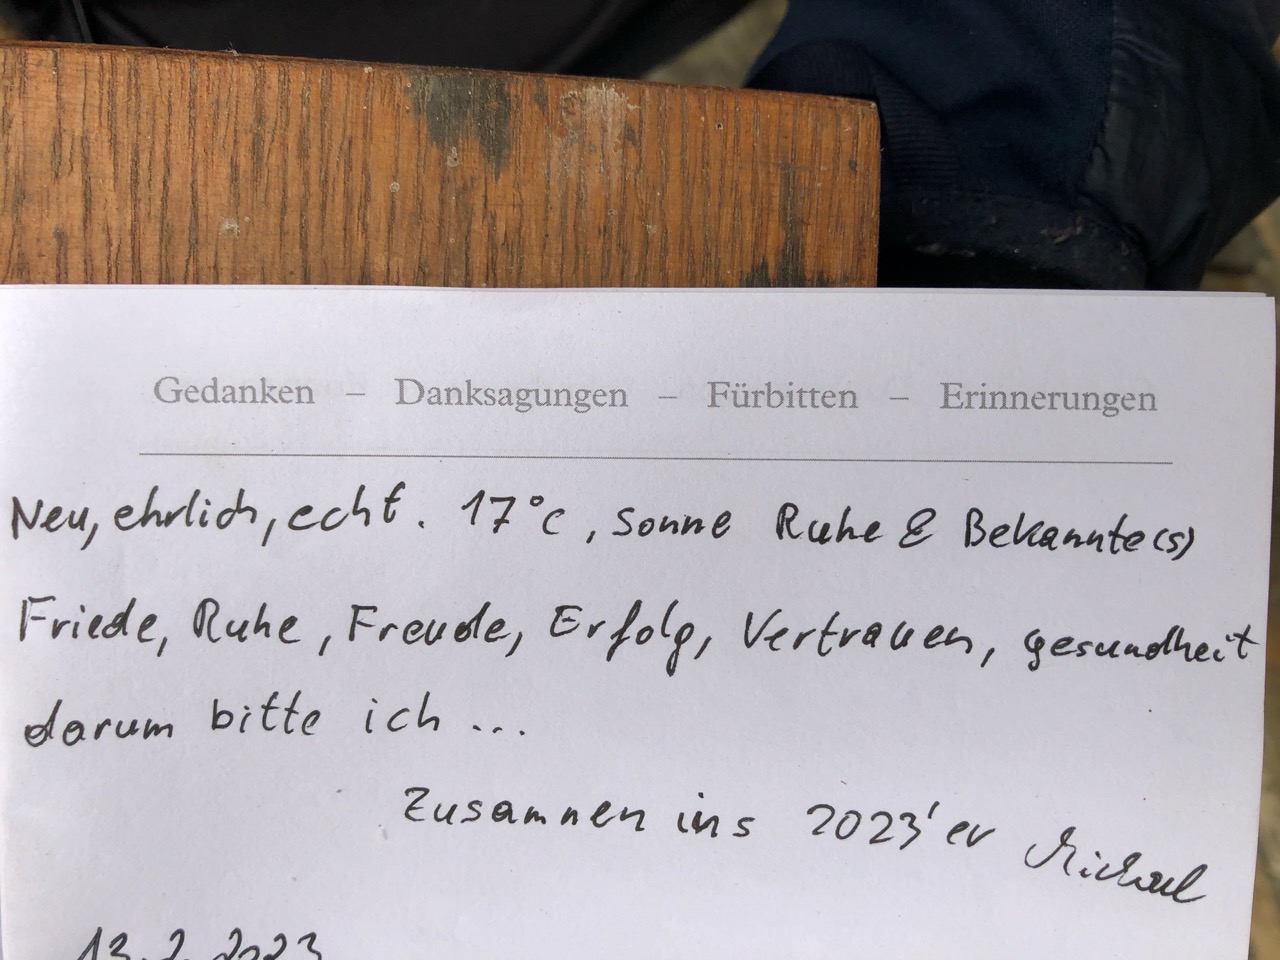 Gedanken – Danksagungen – Fürbitten – Erinnerungen
Neu, ehrlich, echt. 17°C, Sonne Ruhe & Bekannte(s)
Friede, Ruhe, Freude, Erfolg, Vertrauen, gesundheit
darum bitte ich ...
Zusammen ins 2023'er Michael
13.2.2023